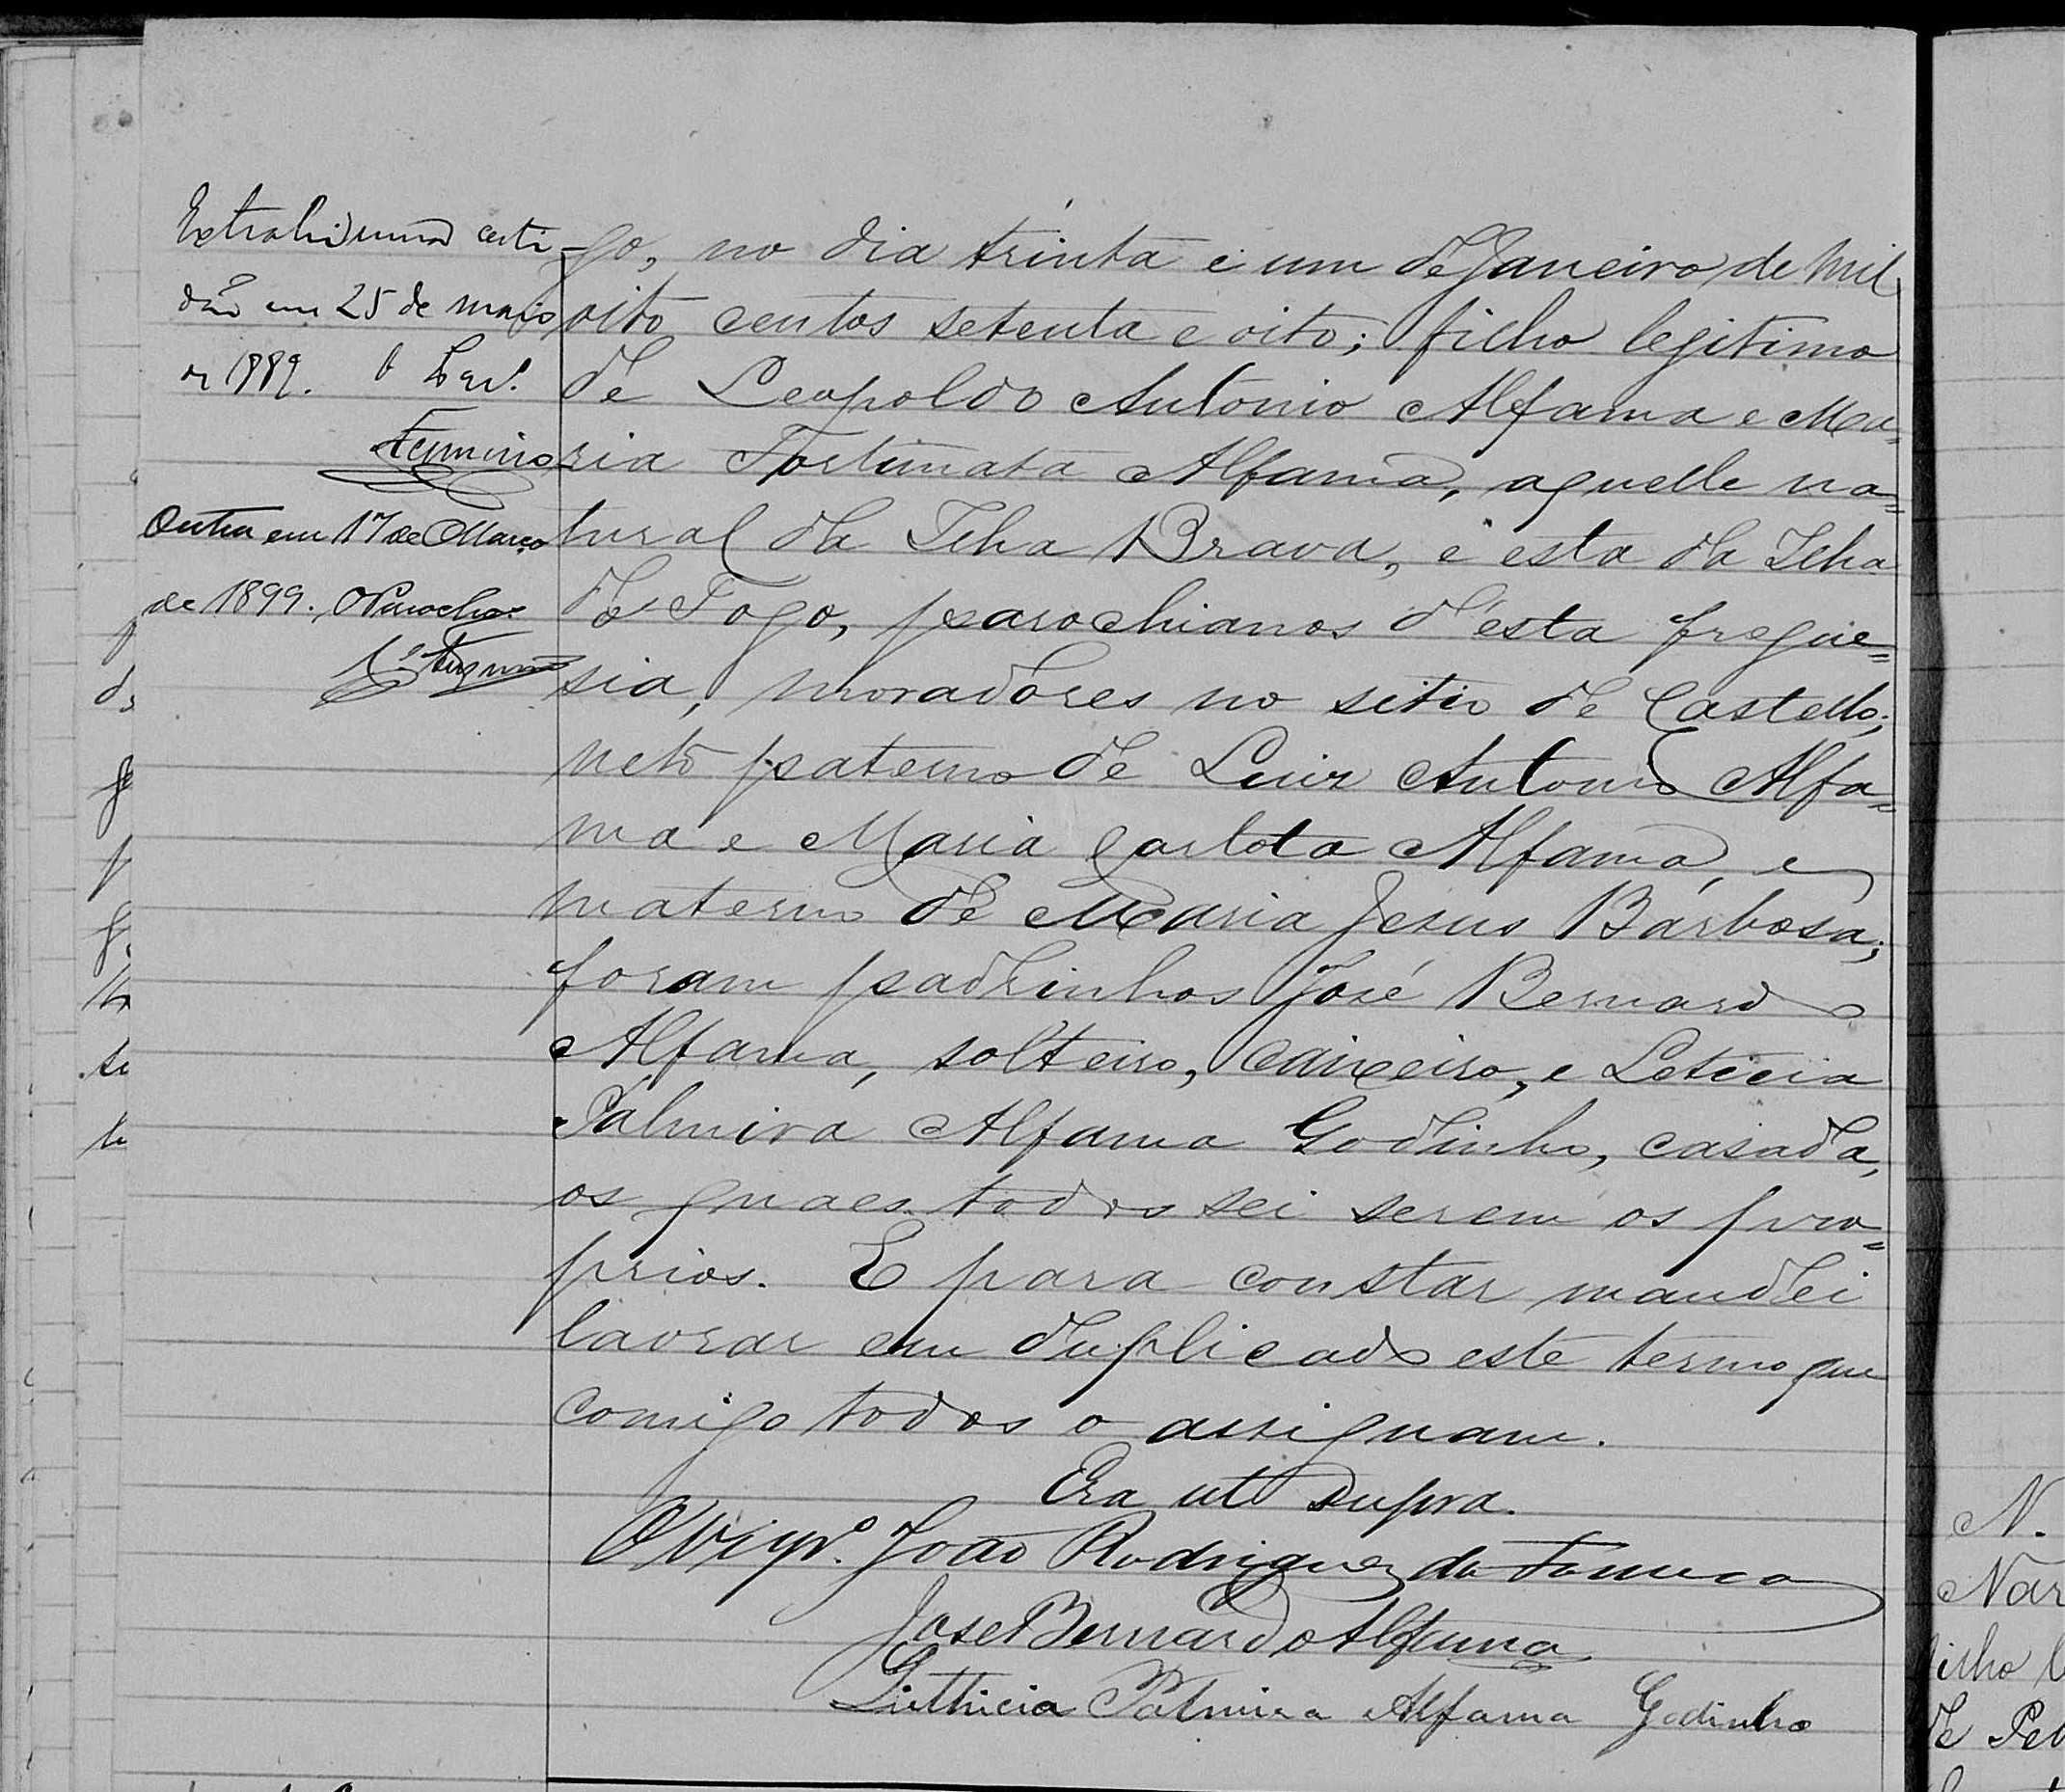 Extrahi uma certi
dão em 25 de maio
de 1889.
Firmino
Outra em 17 de Março
de 1899. O Parocho
go, no dia trinta e um de Janeiro de mil
oito centos setenta e oito; filho legitimo
de Leopoldo Antonio Alfama e Ma=
ria Fortunata Alfama, aquelle na=
tural da Ilha Brava, e esta da Ilha
do Fogo, parochianos d'esta fregue=
sia, moradores no sitio de Castello;
neto paterno de Luiz Antonio Alfa=
ma e Maria Carlota Alfama, e
materno de Maria Jesus Barbosa;
foram padrinhos José Bernardo
Alfama, solteiro, caixeiro, e Leticia
Palmira Alfama Godinho, casada,
os quaes todos sei serem os pro=
prios. E para constar mandei
lavrar em duplicado este termo que
comigo todos o assignam.
Era ut supra.
O Vigr.º João Rodrigues da Fonseca
José Bernardo Alfama
Litthicia Palmira Alfama Godinho
N.
Nar
filho l
de Ped